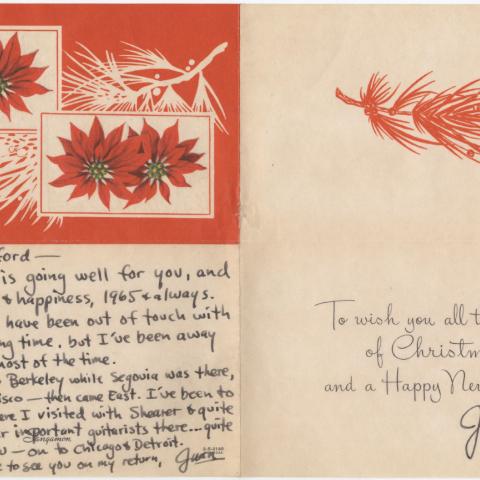 ford —
is going well for you, and
& happiness, 1965 & always.
have been out of touch with
ng time, but I've been away
most of the time.
Berkeley while Segovia was there,
isco — then came East. I've been to
ere I visited with Shearer & quite
r important guitarists there... quite
Sangamon
u — on to Chicago & Detroit.
e to see you on my return,
To wish you all t
of Christm
and a Happy New